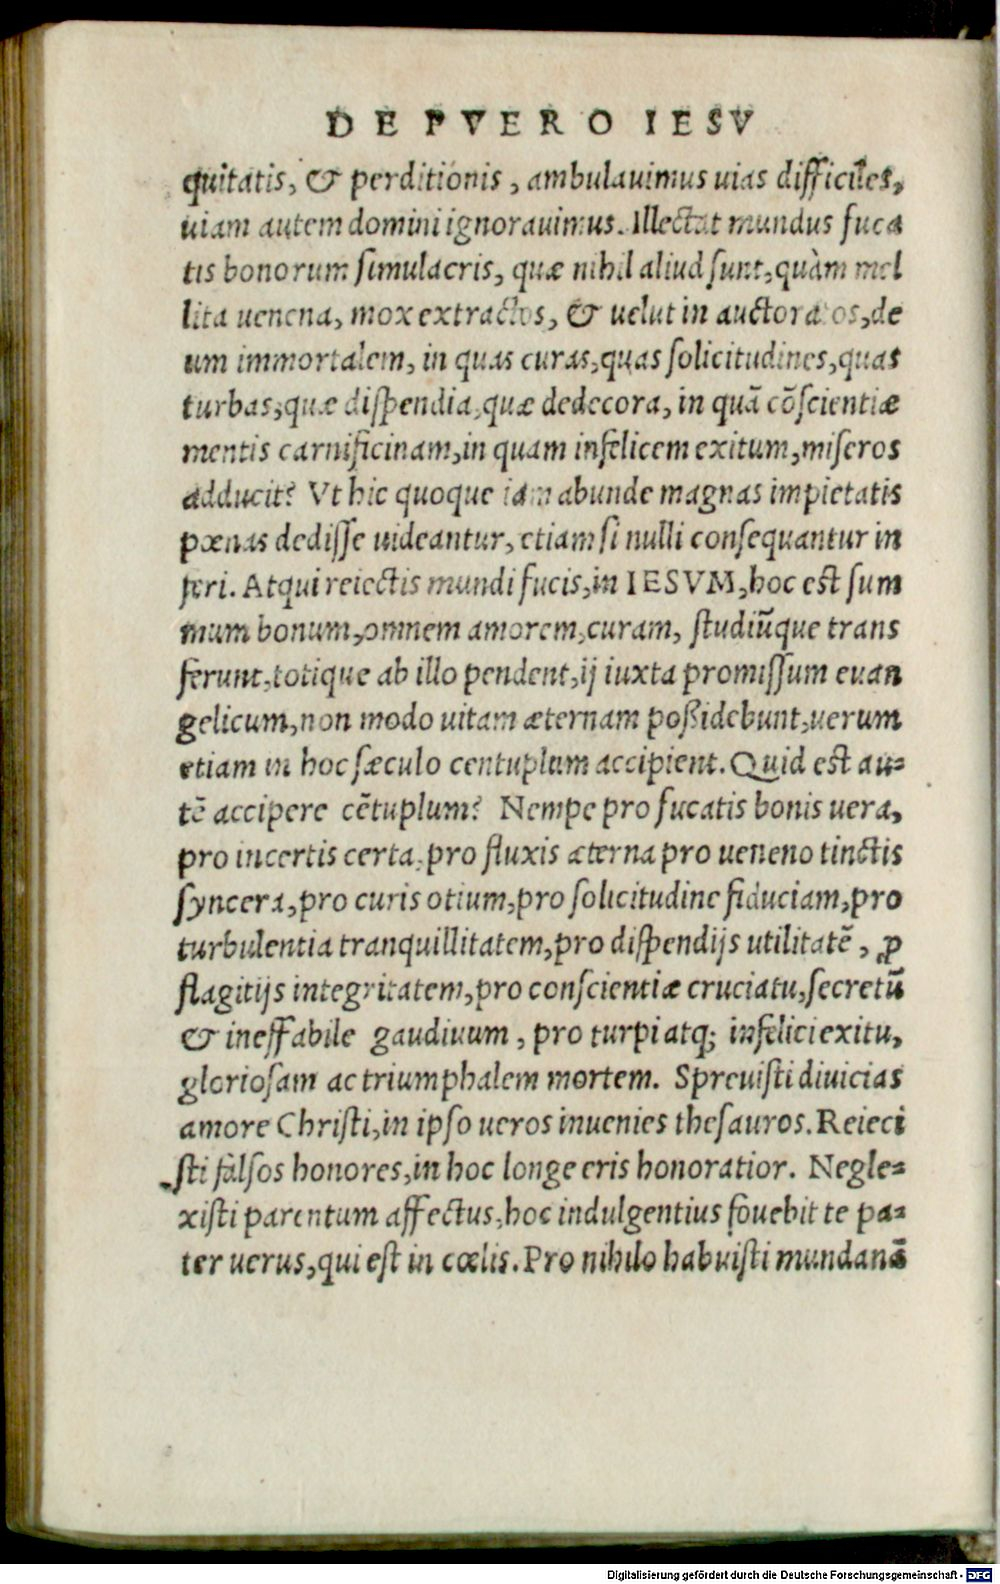 DE PVERO IESV
quitatis, & perditionis, ambulauimus uias difficiles,
uiam autem domini ignorauimus. Illectat mundus fuca
tis bonorum simulacris, quæ nihil aliud sunt, quàm mel
lita uenena, mox extractos, & uelut in auctoratos, de
um immortalem, in quas curas, quas solicitudines, quas
turbas, quæ dispendia, quæ dedecora, in quā cōscientiæ
mentis carnificinam, in quam infelicem exitum, miseros
adducit? Vt hic quoque iam abunde magnas impietatis
pœnas dedisse uideantur, etiam si nulli consequantur in
feri. Atqui reiectis mundi fucis, in IESVM, hoc est sum
mum bonum, omnem amorem, curam, studiūque trans
ferunt, totique ab illo pendent, ij iuxta promissum euan
gelicum, non modo uitam æternam poßidebunt, uerum
etiam in hoc sæculo centuplum accipient. Quid est au-
tē accipere cētuplum? Nempe pro fucatis bonis uera,
pro incertis certa, pro fluxis æterna pro ueneno tinctis
syncera, pro curis otium, pro solicitudine fiduciam, pro
turbulentia tranquillitatem, pro dispendijs utilitatē, ꝓ
flagitijs integritatem, pro conscientiæ cruciatu, secretū
& ineffabile gaudiuum, pro turpi atq; infelici exitu,
gloriosam ac triumphalem mortem. Spreuisti diuicias
amore Christi, in ipso ueros inuenies thesauros. Reieci
sti falsos honores, in hoc longe eris honoratior. Negle-
xisti parentum affectus, hoc indulgentius fouebit te pa-
ter uerus, qui est in cœlis. Pro nihilo habuisti mundanā
Digitalisierung gefördert durch die Deutsche Forschungsgemeinschaft - DFG